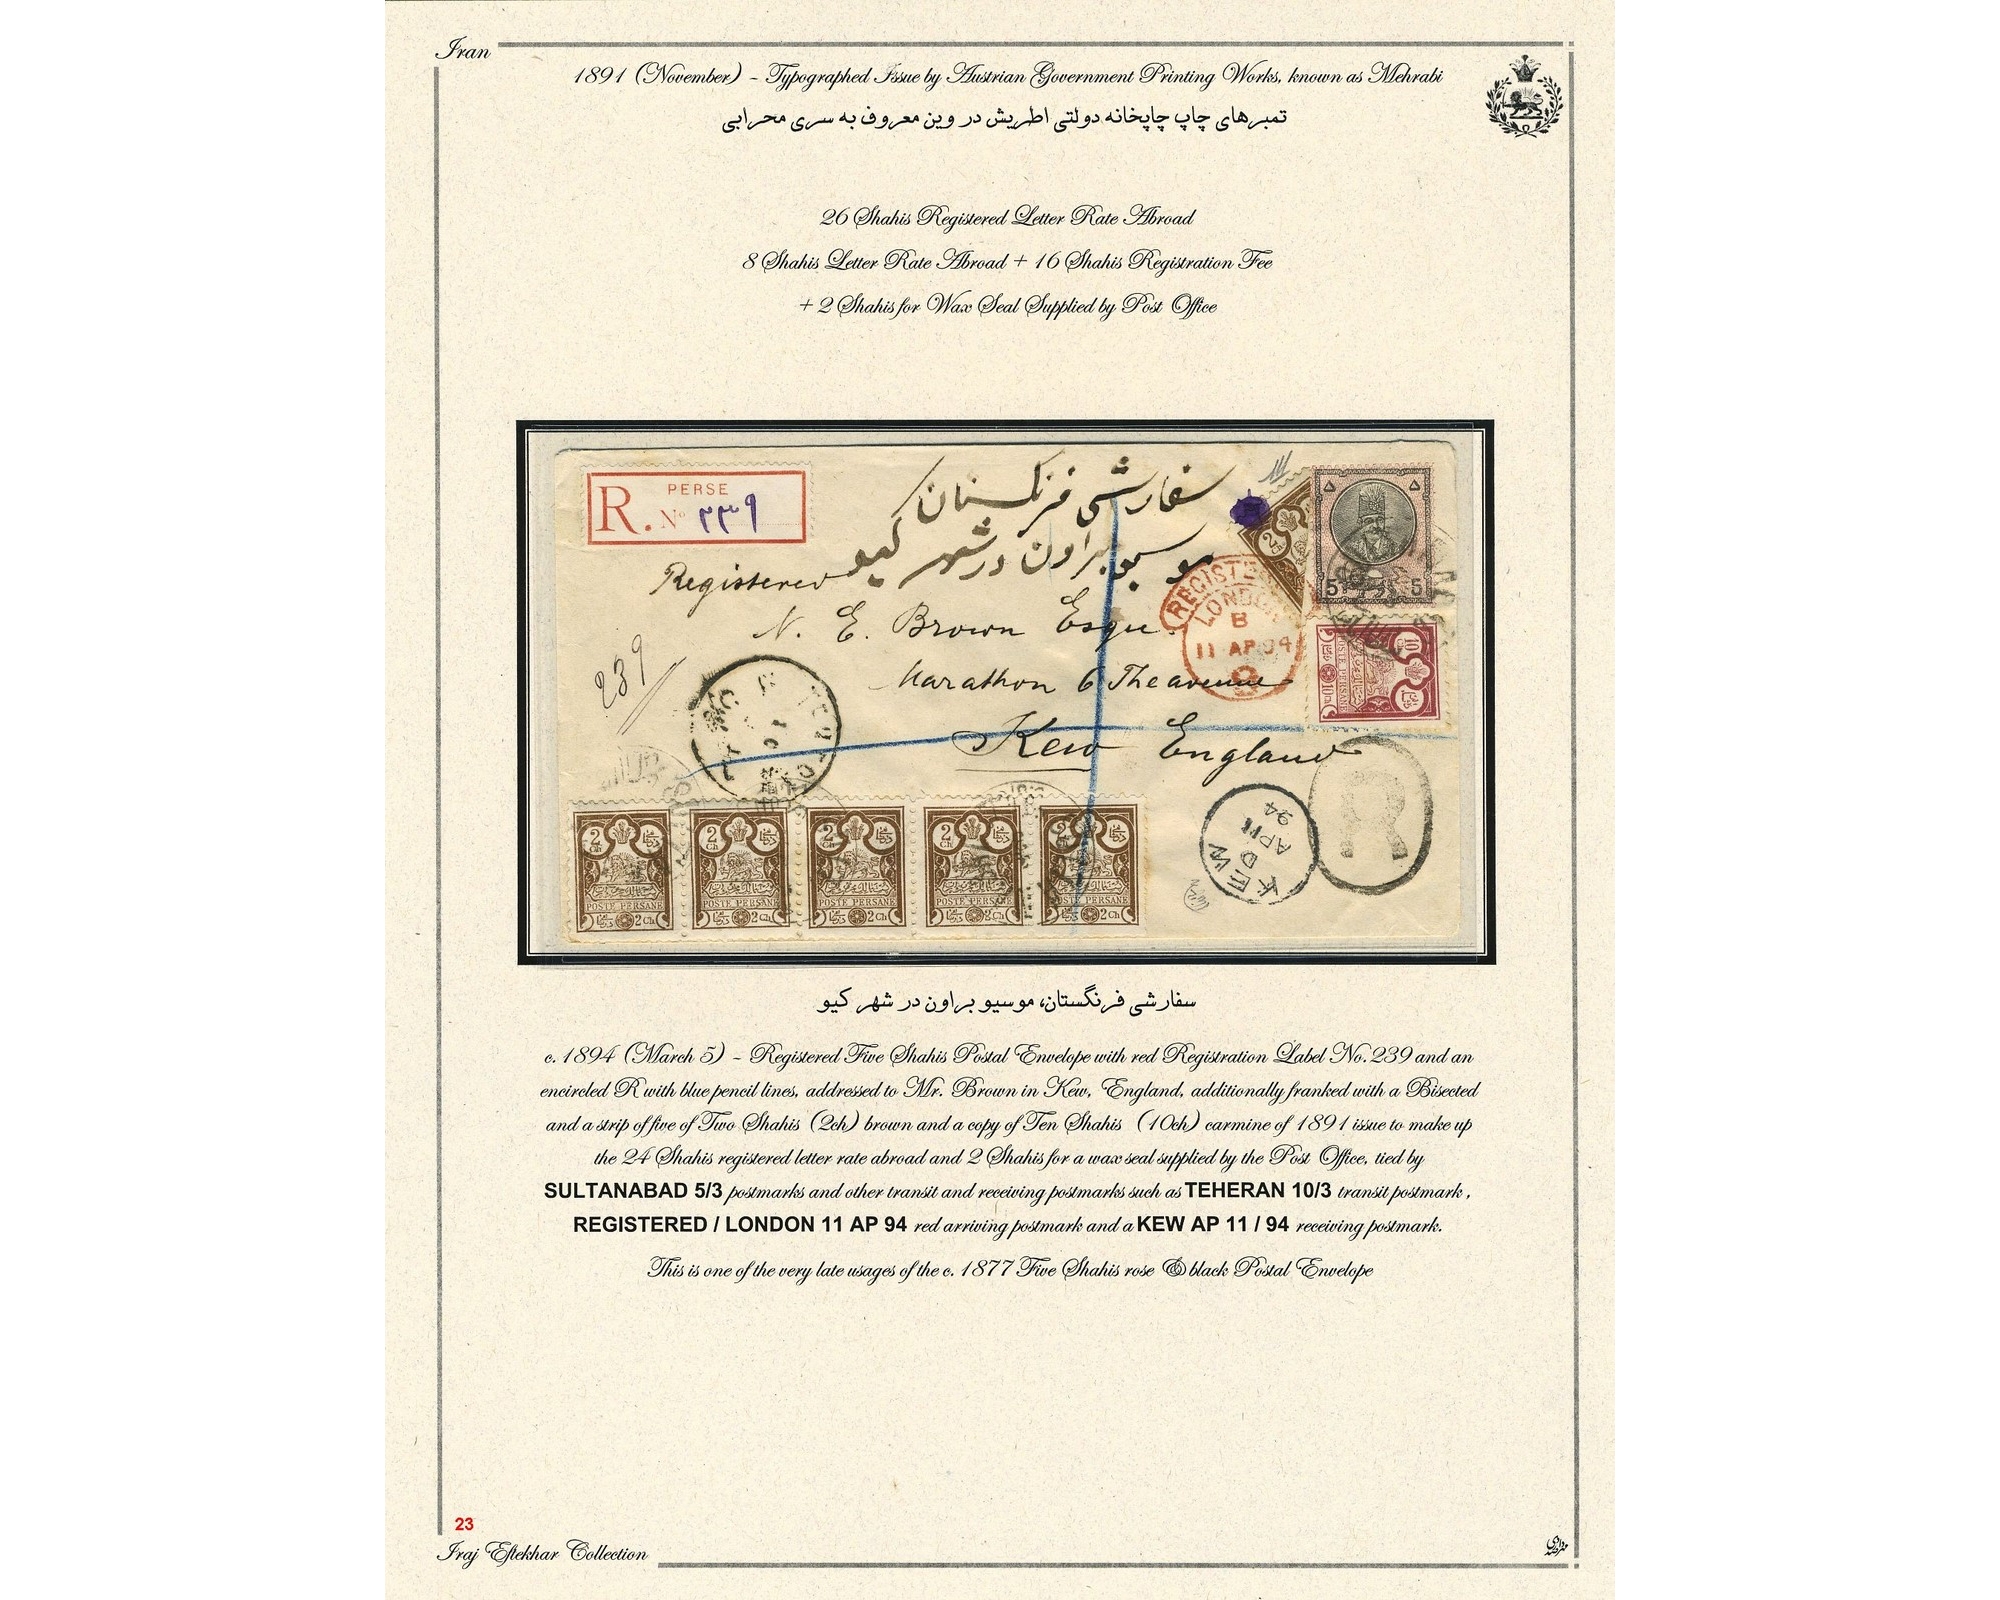 Iran
1891 (November) - Typographed Issue by Austrian Government Printing Works, known as Mehrabi
تمبرهای چاپ چاپخانه دولتی اطریش در وین معروف به سری محرابی
26 Shahis Registered Letter Rate Abroad
8 Shahis Letter Rate Abroad + 16 Shahis Registration Fee
+ 2 Shahis for Wax Seal Supplied by Post Office
R. PERSE
Nº ٢٣٩
سفارشی فرنگستان
موسیو براون در شهر کیو
Registered
N. E. Brown Esqu.
Marathon 6 The avenue
Kew England
239
REGISTERED
LONDON
B
11 AP 94
5 5
10
2
KEW
D
AP 11
94
R
2 Ch 2 Ch 2 Ch 2 Ch 2 Ch
POSTE PERSANE POSTE PERSANE POSTE PERSANE POSTE PERSANE POSTE PERSANE
2 Ch 2 Ch 2 Ch 2 Ch 2 Ch
سفارشی فرنگستان، موسیو براون در شهر کیو
c. 1894 (March 5) - Registered Five Shahis Postal Envelope with red Registration Label No. 239 and an
encircled R with blue pencil lines, addressed to Mr. Brown in Kew, England, additionally franked with a Bisected
and a strip of five of Two Shahis (2ch) brown and a copy of Ten Shahis (10ch) carmine of 1891 issue to make up
the 24 Shahis registered letter rate abroad and 2 Shahis for a wax seal supplied by the Post Office, tied by
SULTANABAD 5/3 postmarks and other transit and receiving postmarks such as TEHERAN 10/3 transit postmark,
REGISTERED / LONDON 11 AP 94 red arriving postmark and a KEW AP 11 / 94 receiving postmark.
This is one of the very late usages of the c. 1877 Five Shahis rose & black Postal Envelope
23
Iraj Eftekhar Collection